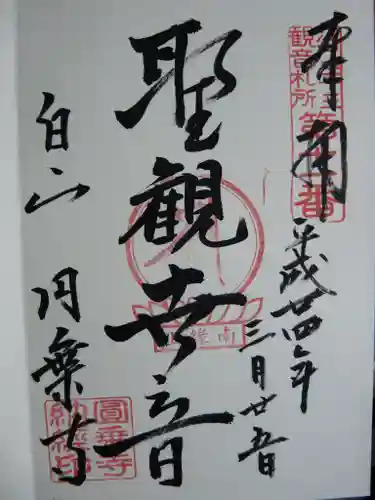 奉拝
平成廿四年
三月廿五日
聖観世音
白山 円乗寺
観音札所
圓乗寺
納経印